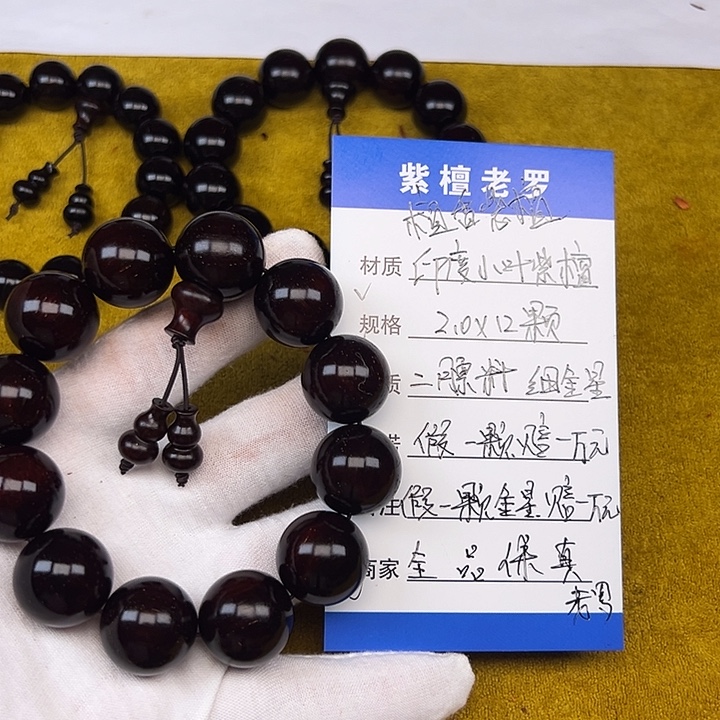 紫檀老罗
材质 印度小叶紫檀
规格 2.0x12颗
质 二牍料 细金星
假一颗赔一万元
注 假一颗金星赔一万元
商家 全品保真
老罗